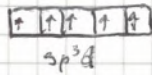 sp³d